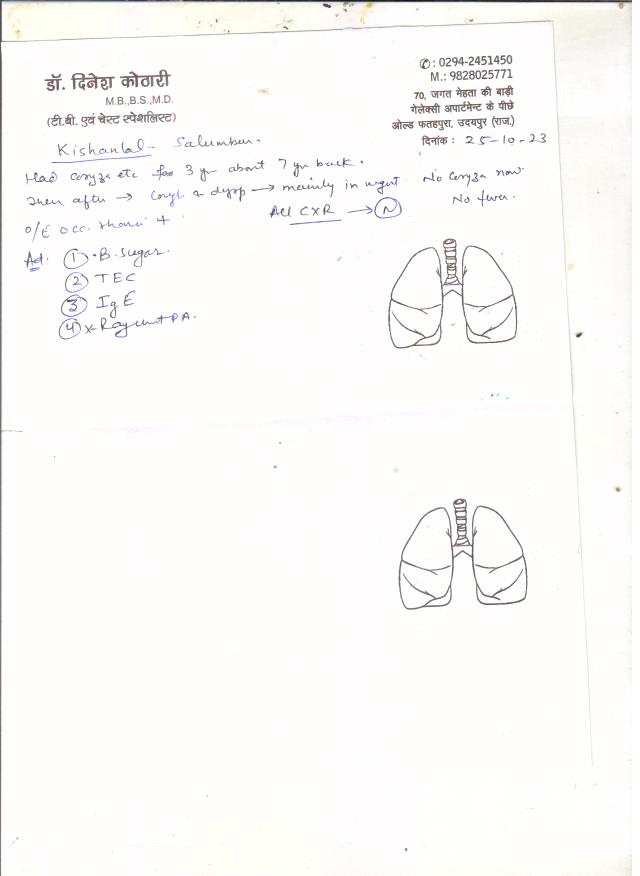 डॉ. दिनेश कोठारी
M.B.,B.S.,M.D.
(टी.बी. एवं चेस्ट स्पेशलिस्ट)
✆: 0294-2451450
M.: 9828025771
70, जगत मेहता की बाड़ी
गेलेक्सी अपार्टमेन्ट के पीछे
ओल्ड फतहपुरा, उदयपुर (राज.)
दिनांक : 25-10-23
Kishanlal - Salumber.
Had coryza etc for 3 yr about 7 yr back.
then after → cough & dysp → mainly in night. No coryza now
No fever.
All CXR → N
O/E occ. rhonchi +
Ad. 1 B. Sugar.
2 TEC
3 IgE
4 X-Ray chest PA.